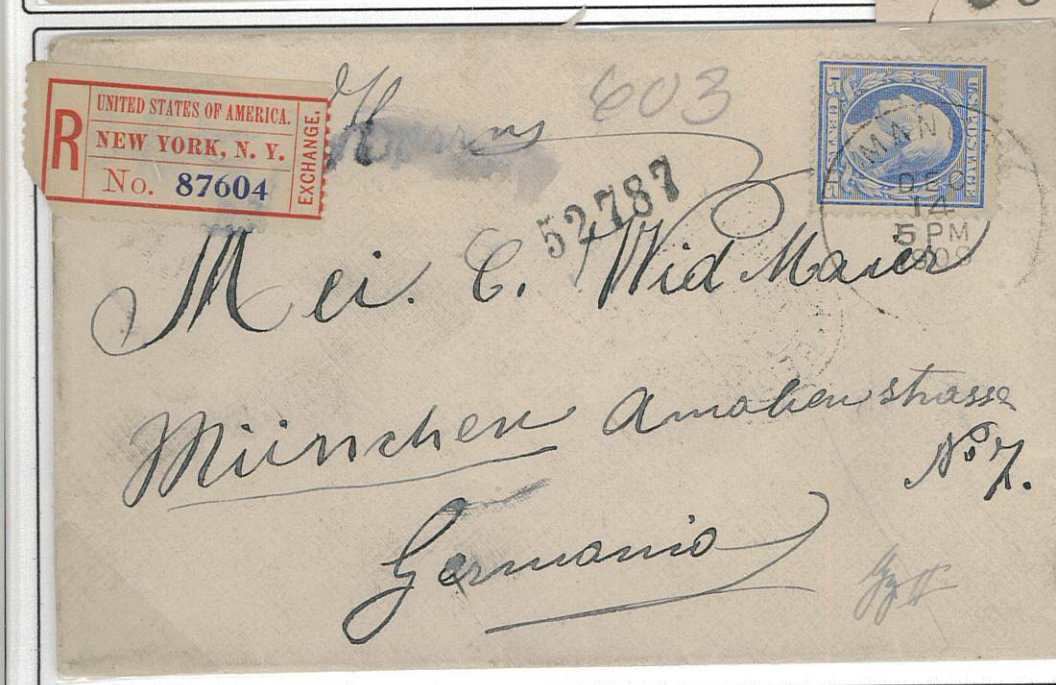 R
UNITED STATES OF AMERICA.
NEW YORK, N. Y.
No. 87604
EXCHANGE.
603
52787
U.S. POSTAGE
MAN
DEC
14
5 PM
Mei. C. Wid Maier
München Amalienstrasse
No 7.
Germania